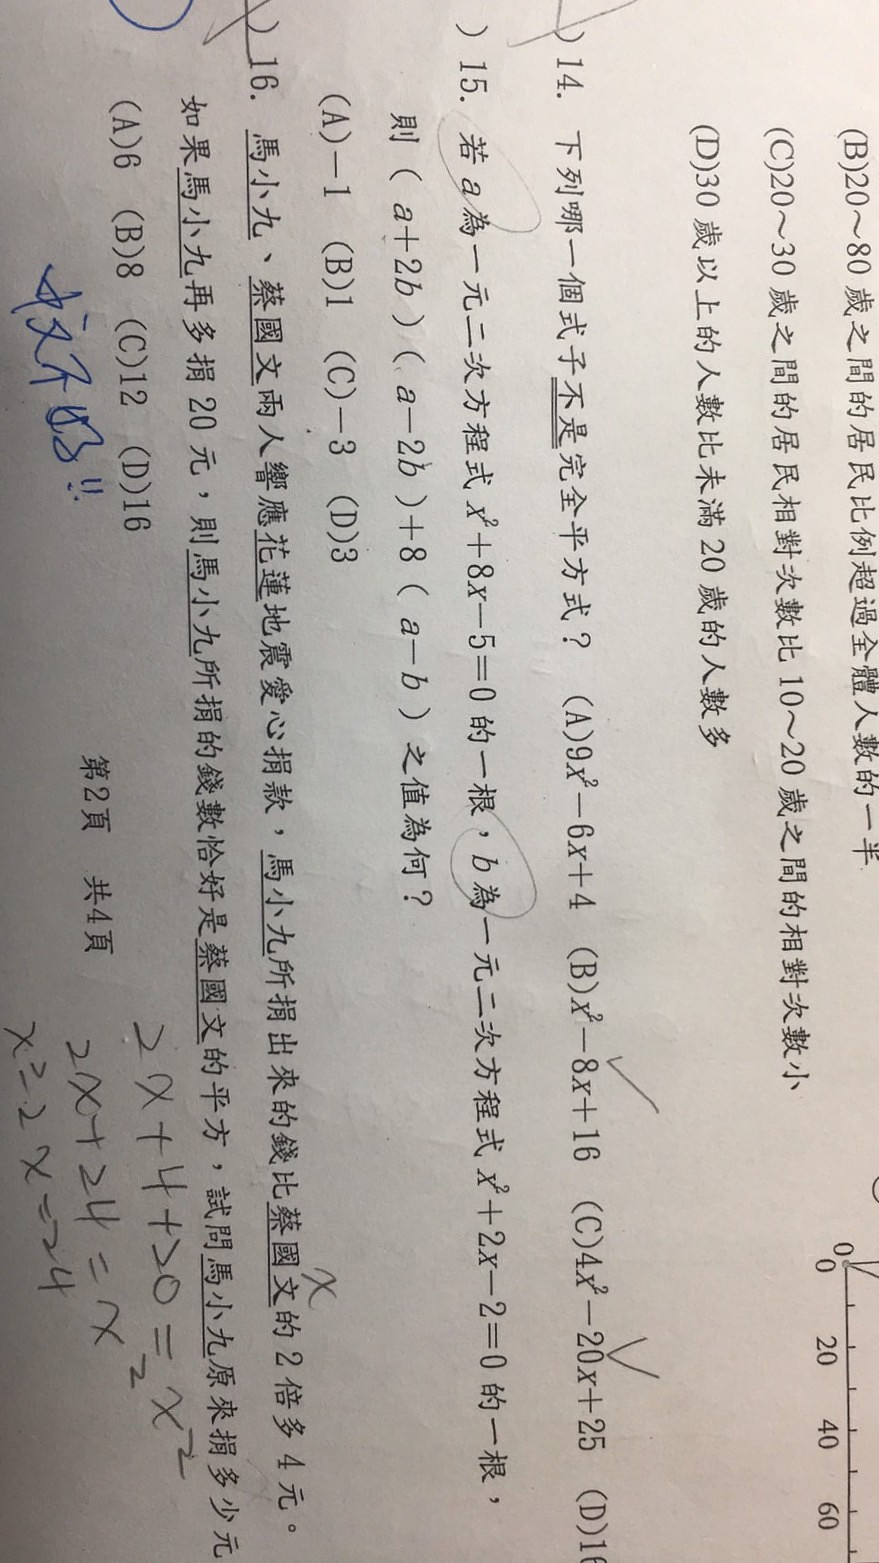 (B)20～80 歲之間的居民比例超過全體人數的一半
(C)20～30 歲之間的居民相對次數比 10～20 歲之間的相對次數小
(D)30 歲以上的人數比未滿 20 歲的人數多
0
0 20 40 60
) 14. 下列哪一個式子不是完全平方式？ (A)9x²－6x＋4 (B)x²－8x＋16 (C)4x²－20x＋25 (D)16
) 15. 若 a 為一元二次方程式 x²＋8x－5＝0 的一根，b 為一元二次方程式 x²＋2x－2＝0 的一根，
則（a＋2b）（a－2b）＋8（a－b）之值為何？
(A)－1 (B)1 (C)－3 (D)3
x
) 16. 馬小九、蔡國文兩人響應花蓮地震愛心捐款，馬小九所捐出來的錢比蔡國文的 2 倍多 4 元。
如果馬小九再多捐 20 元，則馬小九所捐的錢數恰好是蔡國文的平方，試問馬小九原來捐多少元
(A)6 (B)8 (C)12 (D)16
2x+4+20=x²
中文不好!!
2x+24=x²
x²-2x=24
第2頁 共4頁